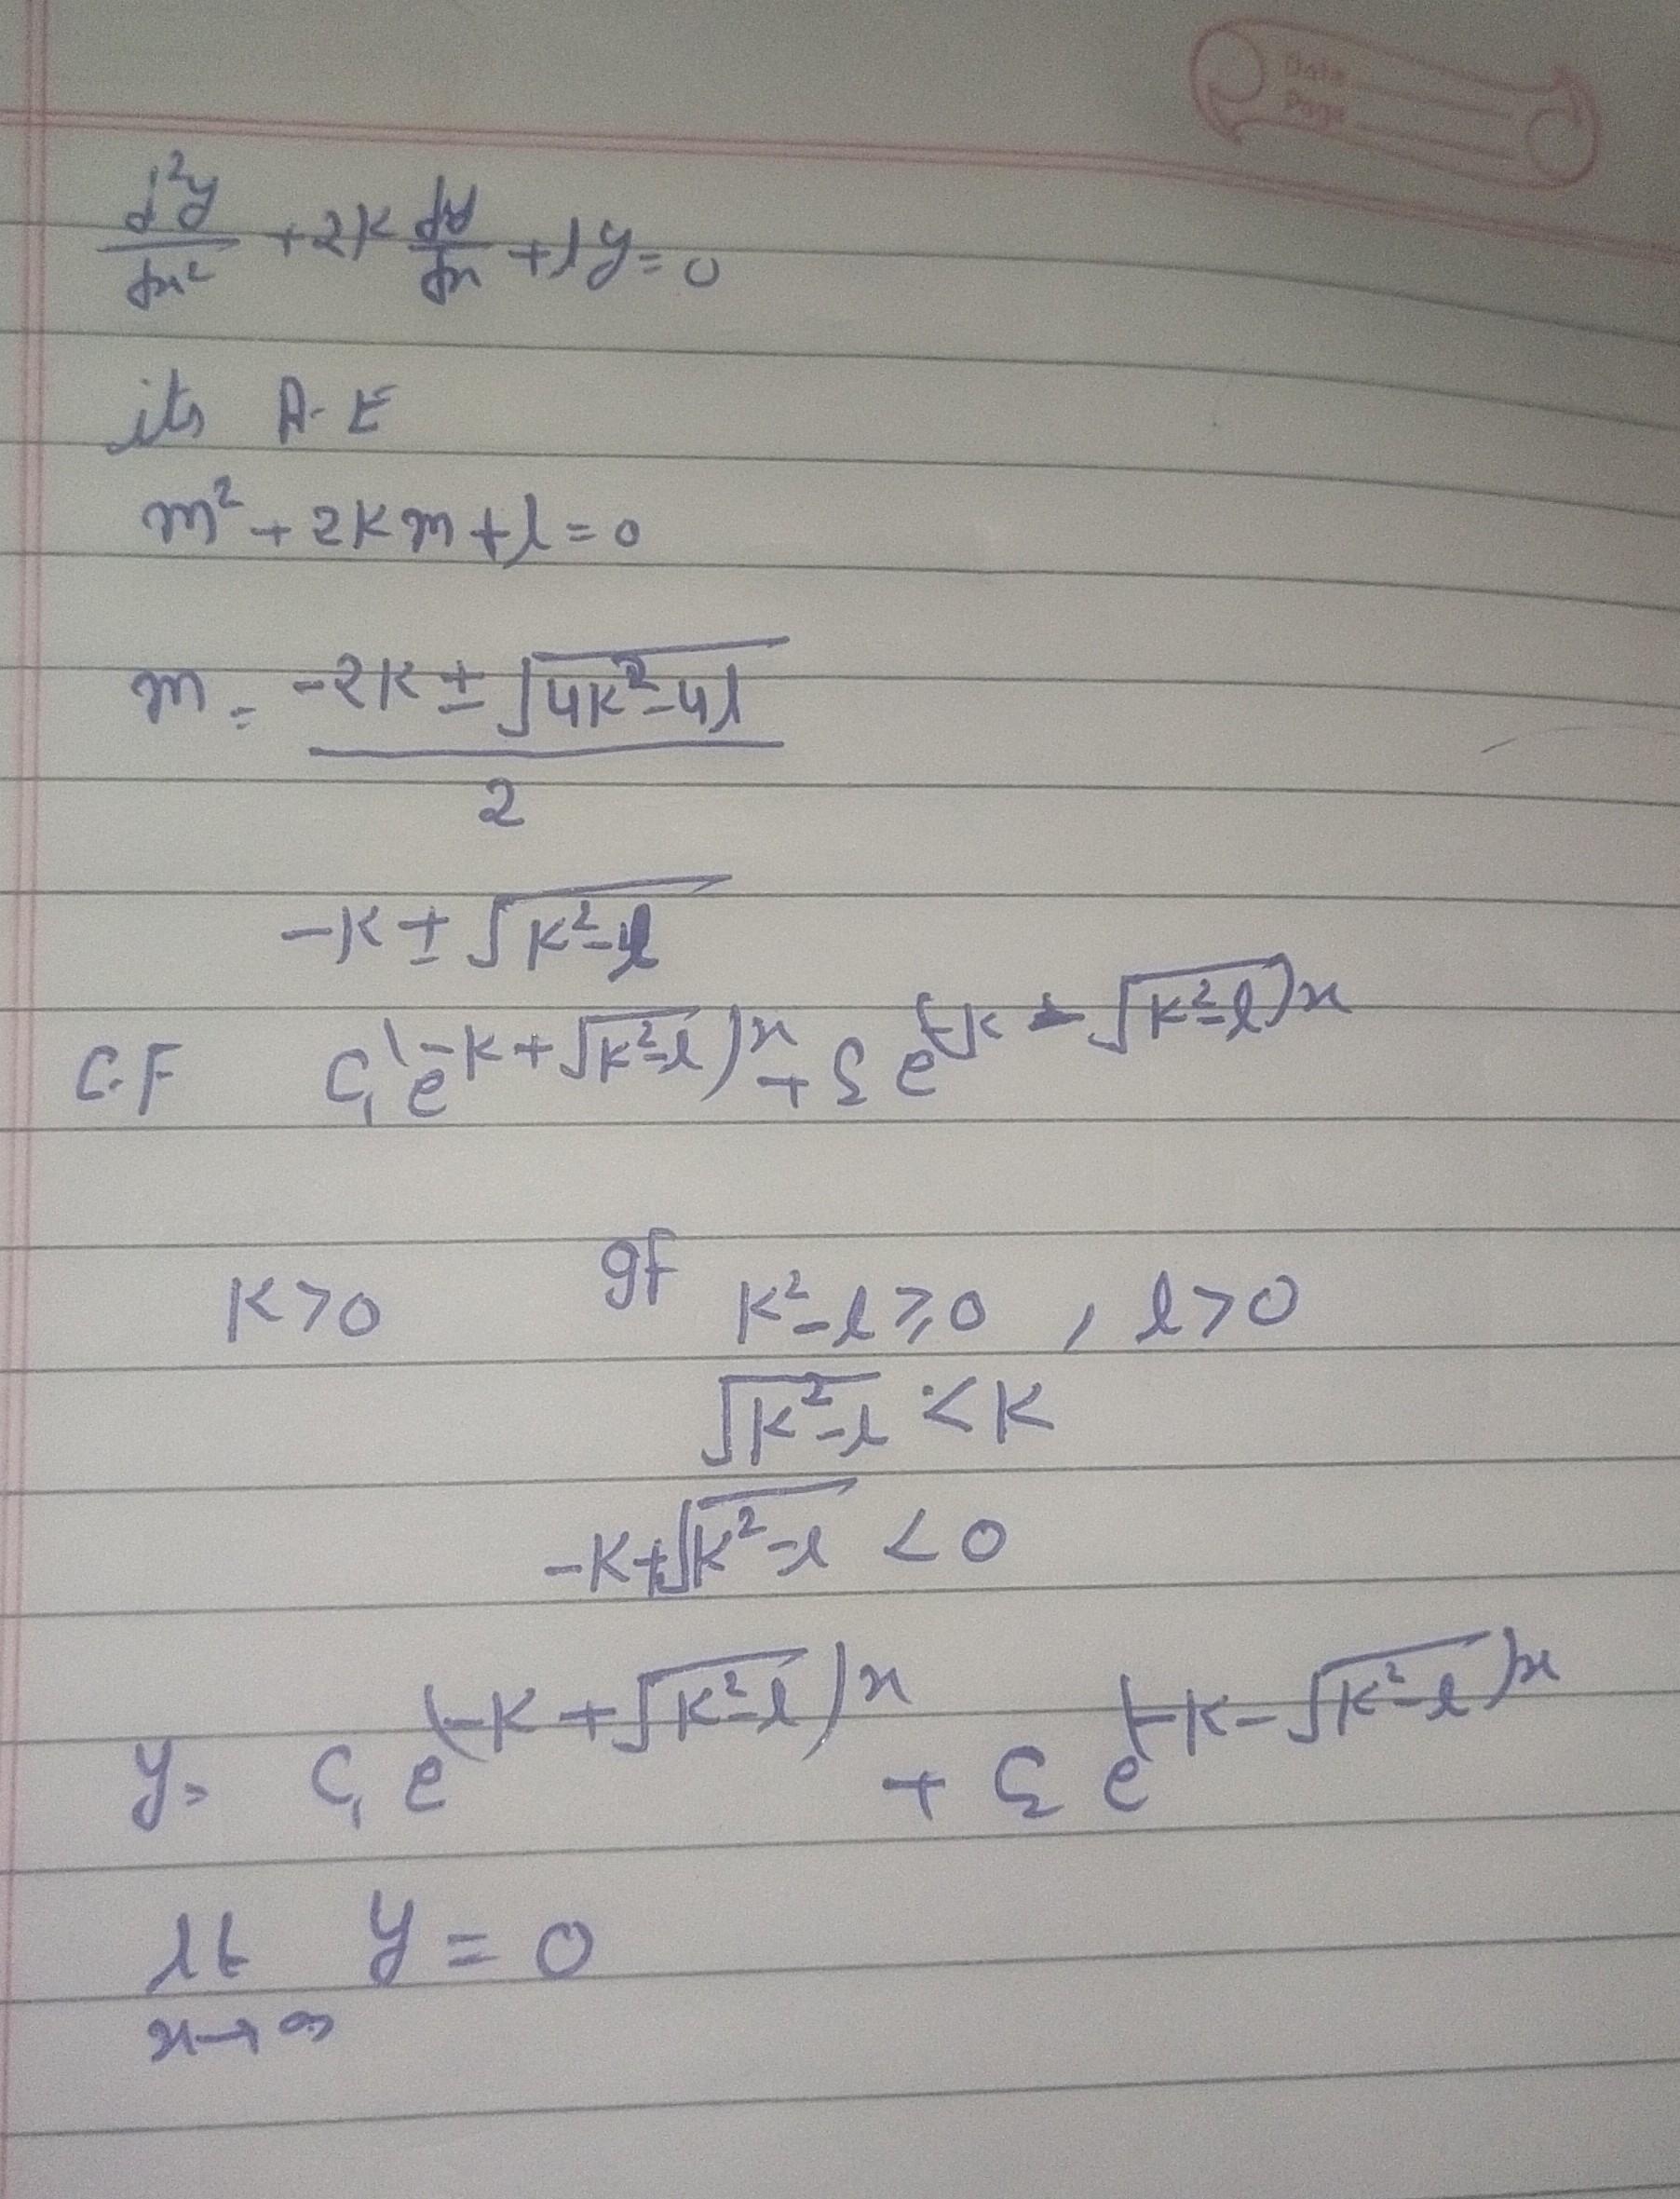 Date
Page
d²y/dx² + 2k dy/dx + ly = 0
its A·E
m² + 2km + l = 0
m = (-2k ± √(4k² - 4l))/2
-k ± √(k² - l)
C.F C₁e^(-k + √(k² - l))x + C₂e^(-k - √(k² - l))x
k > 0 If k² - l ≥ 0 , l > 0
√(k² - l) < k
-k + √(k² - l) < 0
y = C₁ e^(-k + √(k² - l))x + C₂ e^(-k - √(k² - l))x
lt y = 0
x → ∞